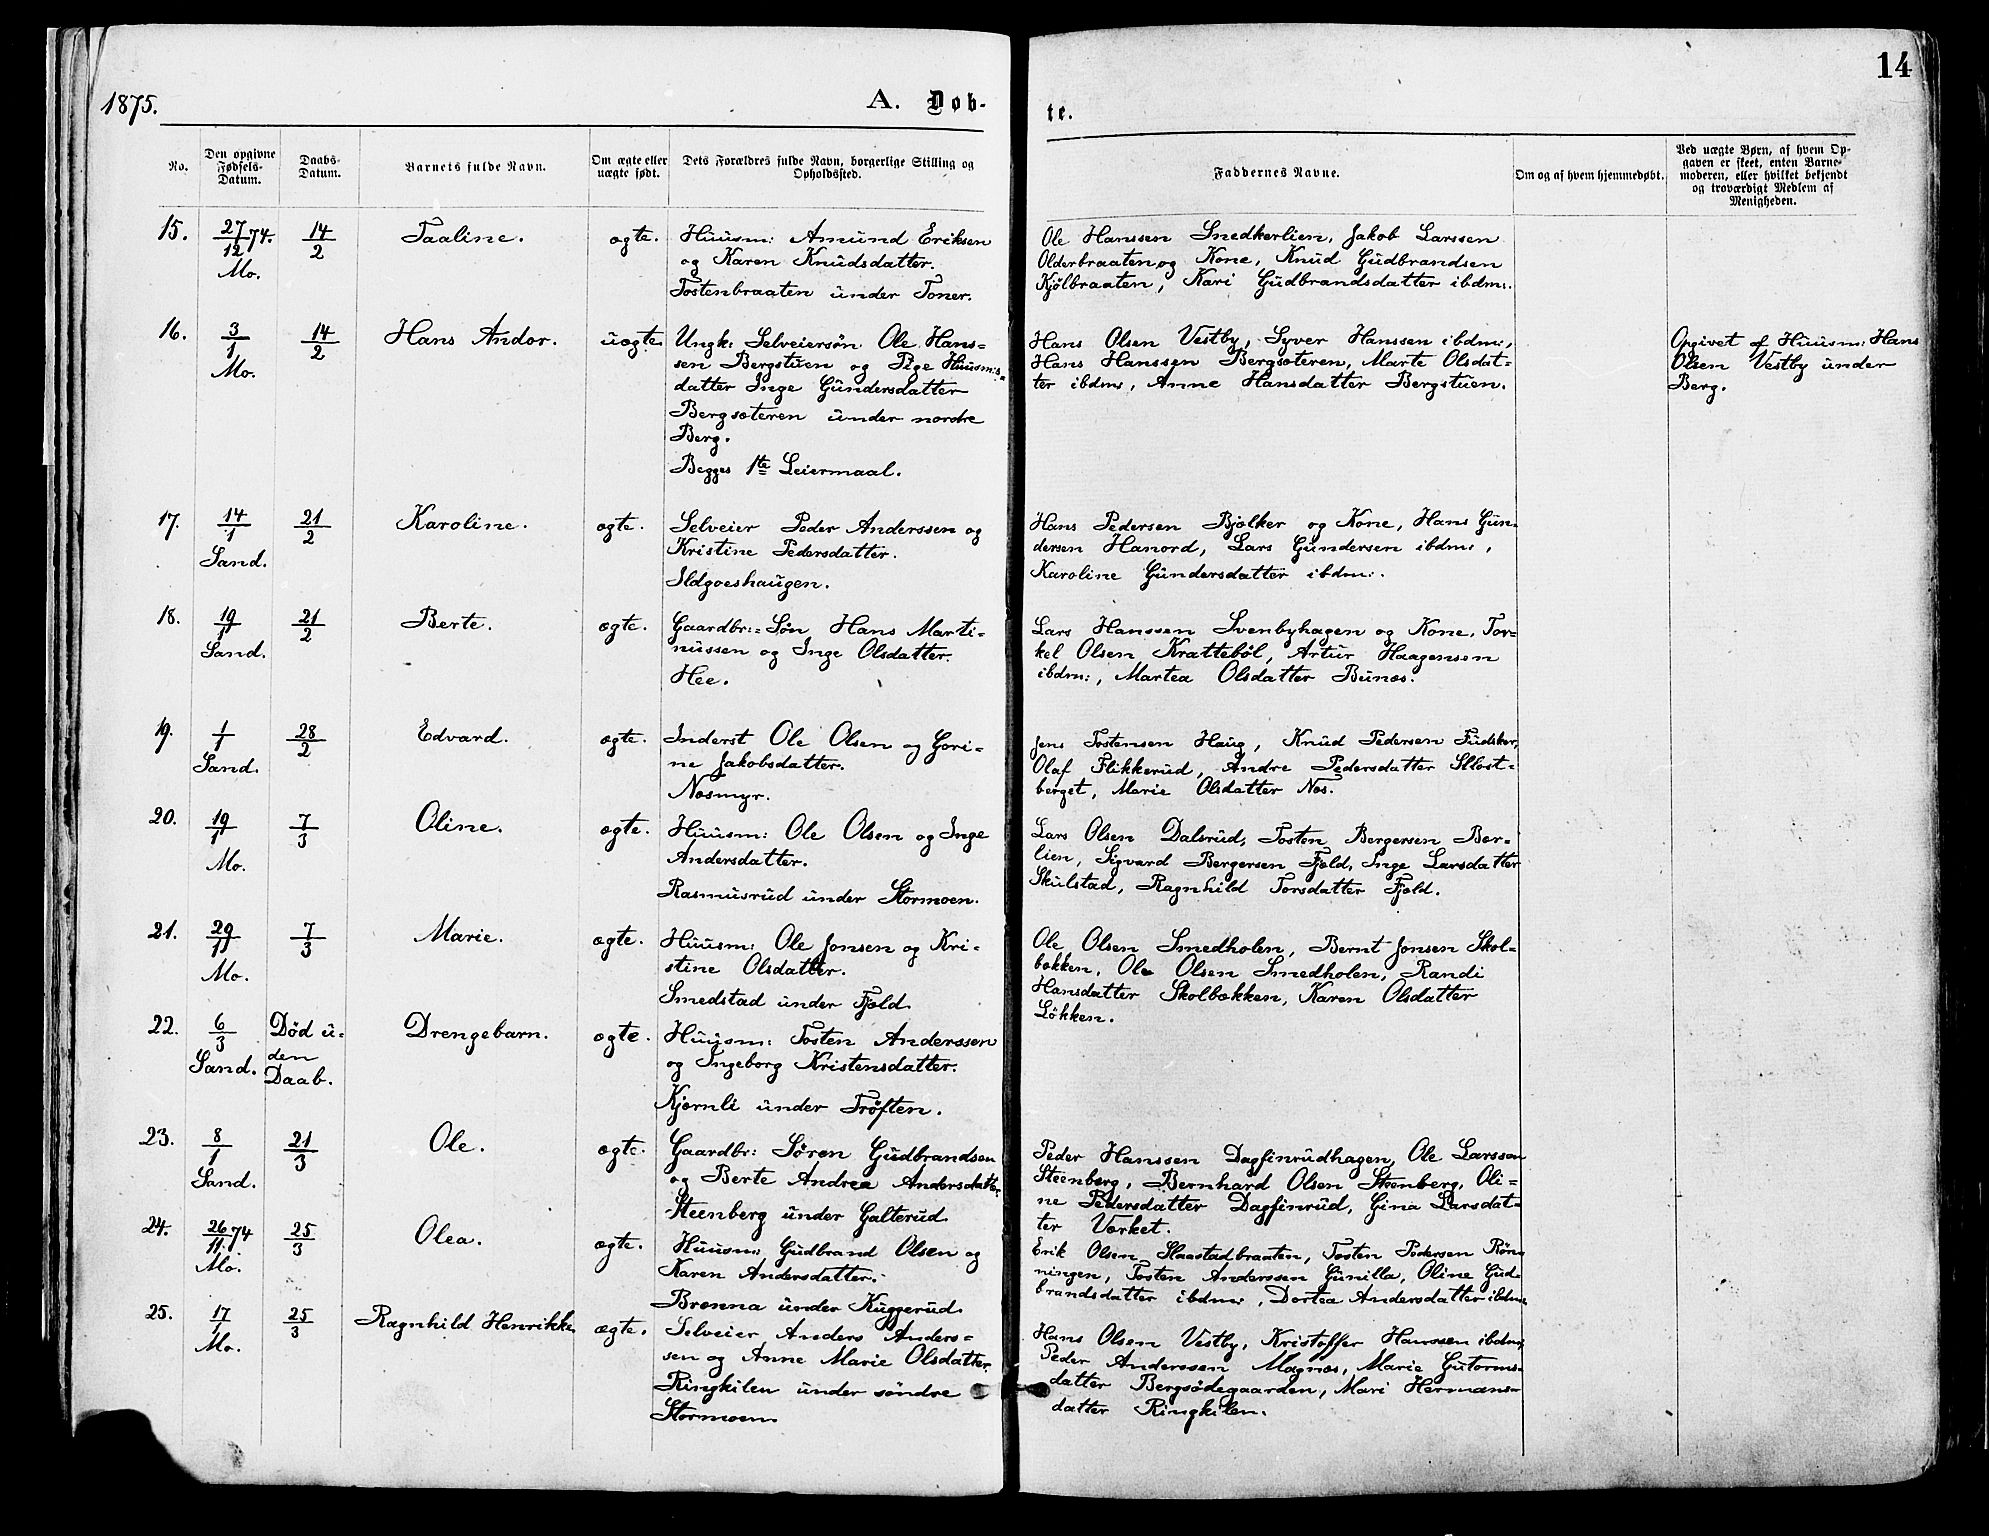 14
1875.
A. Døb-
te.
No.
Den opgivne Fødsels-Datum.
Daabs-Datum.
Barnets fulde Navn.
Om ægte eller uægte født.
Dets Forældres fulde Navn, borgerlige Stilling og Opholdssted.
Faddernes Navne.
Om og af hvem hjemmedøbt.
Ved uægte Børn, af hvem Op-
gaven er skeet, enten Barne-
moderen, eller hvilket bekjendt
og troværdigt Medlem af
Menigheden.
15. 27/12 74. Mo. 14/2 Taaline. ægte.
Huusm: Amund Eriksen
og Karen Knudsdatter.
Tostenbraaten under Toner.
Ole Hanssen Snedkerlien, Jakob Larssen
Olderbraaten og Kone, Knud Gudbrandsen
Kjölbraaten, Kari Gudbrandsdatter ibdm:.
16. 3/1 Mo. 14/2 Hans Andor. uægte.
Ungk: Selveiersøn Ole Hans-
sen Bergstuen og Pige Huusm:s-
datter Inge Gundersdatter
Bergsæteren under nordre
Berg.
Begges 1te Leiermaal.
Hans Olsen Vestby, Syver Hanssen ibdm:,
Hans Hanssen Bergsæteren, Marte Olsdat-
ter ibdm:, Anne Hansdatter Bergstuen.
Opgivet af Huusm: Hans
Olsen Vestby under
Berg.
17. 14/1 Sand. 21/2 Karoline. ægte.
Selveier Peder Anderssen og
Kristine Pedersdatter.
Ildgoeshaugen.
Hans Pedersen Bjølker og Kone, Hans Gun-
dersen Hanord, Lars Gundersen ibdm:,
Karoline Gundersdatter ibdm:.
18. 19/1 Sand. 21/2 Berte. ægte.
Gaardbr:-Søn Hans Marti-
nussen og Inge Olsdatter.
Hee.
Lars Hanssen Svenbyhagen og Kone, Tor-
kel Olsen Kratteböl, Artur Haagensen
ibdm:, Martea Olsdatter Bunæs.
19. 1/1 Sand. 28/2 Edvard. ægte.
Inderst Ole Olsen og Gori-
ne Jakobsdatter.
Næsmyr.
Jens Tostensen Haug, Knud Pedersen
Olaf Flikkerud, Andre Pedersdatter
berget, Marie Olsdatter Næs.
20. 19/1 Mo. 7/3 Oline. ægte.
Huusm: Ole Olsen og Inge
Andersdatter.
Rasmusrud under Stormoen.
Lars Olsen Dalsrud, Tosten Bergersen Bær-
lien, Sigvard Bergersen Fjeld, Inge Larsdatter
Skulstad, Ragnhild Torsdatter Fjeld.
21. 29/1 Mo. 7/3 Marie. ægte.
Huusm: Ole Jonsen og Kri-
stine Olsdatter.
Smedstad under Fjeld.
Ole Olsen Smedholen, Bernt Jonsen Skol-
bækken, Ole Olsen Smedholen, Randi
Hansdatter Skolbækken, Karen Olsdatter
Løkken.
22. 6/3 Sand. Død u-
den
Daab. Drengebarn. ægte.
Huusm: Tosten Anderssen
og Ingeborg Kristensdatter.
Kjernli under Trøften.
23. 8/1 Sand. 21/3 Ole. ægte.
Gaardbr: Søren Gudbrandsen
og Berte Andrea Andersdatter.
Steenberg under Galterud.
Peder Hanssen Dagfinrudhagen, Ole Larssen
Steenberg, Bernhard Olsen Steenberg, Oli-
ne Pedersdatter Dagfinrud, Gina Larsdat-
ter Værket.
24. 26/11 74 Mo. 25/3 Olea. ægte.
Huusm: Gudbrand Olsen og
Karen Andersdatter.
Brenna under Kuggerud.
Erik Olsen Slaastadbraaten, Tosten Pedersen Røn-
ningen, Tosten Anderssen Gunilla, Oline Gud-
brandsdatter ibdm:, Dortea Andersdatter ibdm:
25. 17/1 Mo. 25/3 Ragnhild Henrikke. ægte.
Selveier Anders Anders-
sen og Anne Marie Olsdatter.
Ringkilen under søndre
Stormoen.
Hans Olsen Vestby, Kristoffer Hanssen ibdm:,
Peder Anderssen Magnæs, Marie Gutorms-
datter Bergsødegaarden, Mari Hermans-
datter Ringkilen.